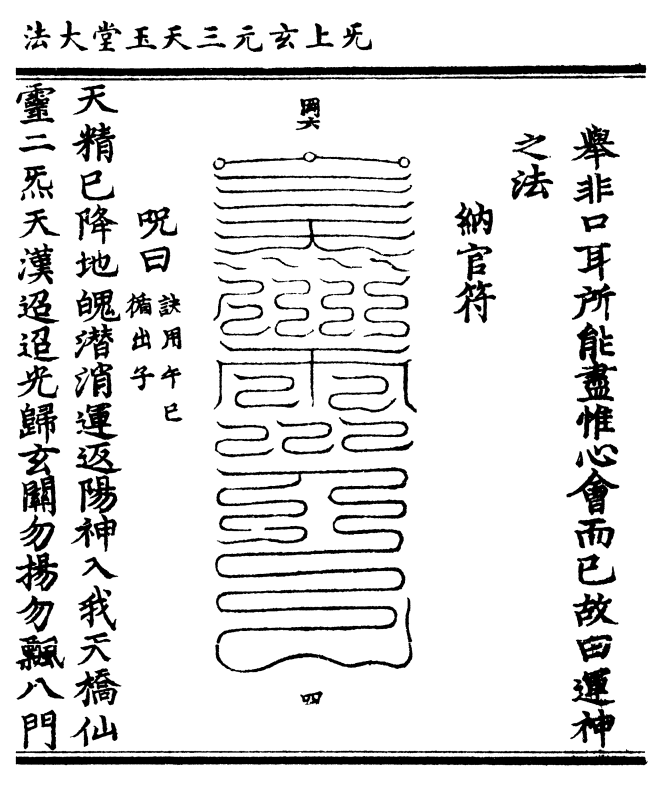 旡上玄元三天玉堂大法
舉非口耳所能盡惟心會而已故曰運神
之法
納官符
岡六
四
呪曰
訣用午巳
循出子
天精已降地魄潛消運返陽神入我天橋仙
靈二炁天漢迢迢光歸玄關勿揚勿飄八門